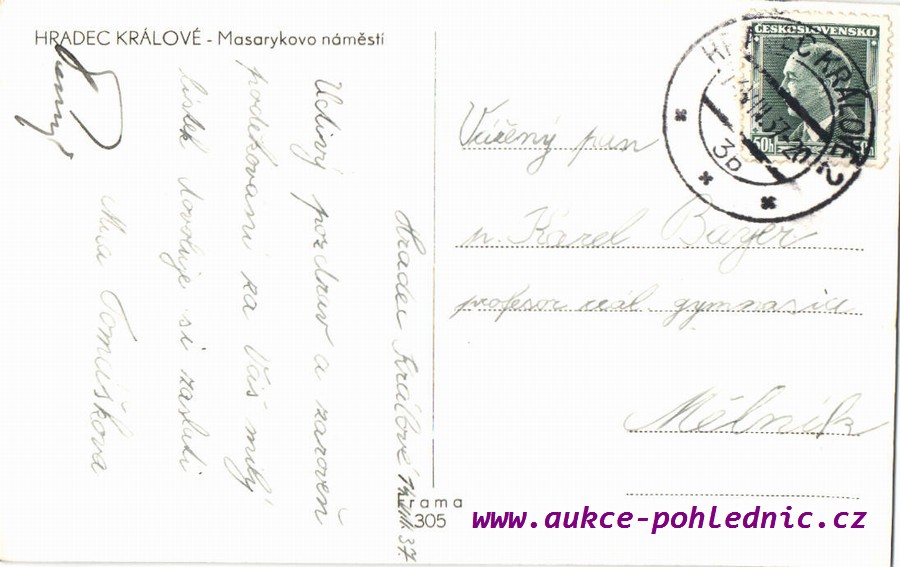 HRADEC KRÁLOVÉ - Masarykovo náměstí
Hradec Králové 14.VIII.37.
Uctivý pozdrav a zároveň
poděkovani za Váš milý
lístek dovoluje si zaslati
Mila Tomášková
Vážený pan
p. Karel Bayer
profesor reál. gymnasia
Mělník
ČESKOSLOVENSKO
50h
HRADEC KRÁLOVÉ 2
3b
305
www.aukce-pohlednic.cz